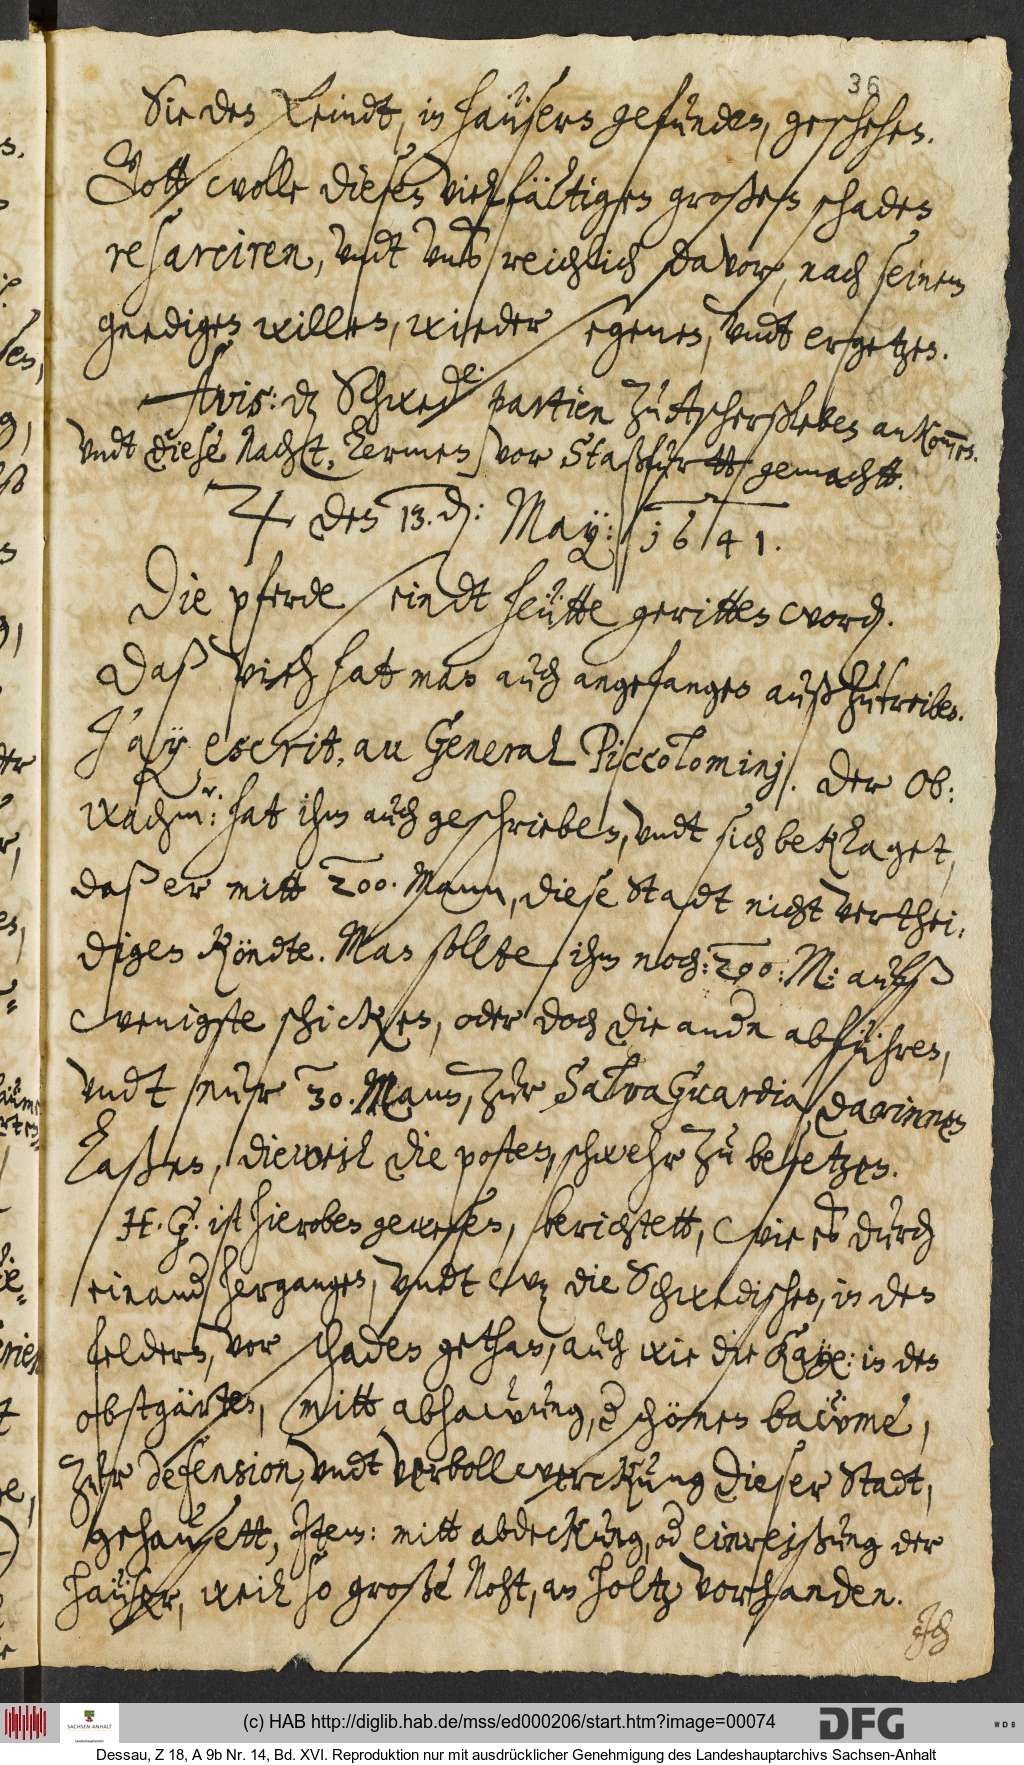 36
Sie den Feindt, in haüsern gefunden, geschehen.
Gott wolle diesen vielfältigen großen schaden
resarciren, vndt vnß reichlich davor, nach seinem
gnedigen willen, wieder segenen, vndt ergetzen.
Avis: dz Schwede: partien zu Aschersleben ankommen.
vndt diese Nacht, Lermen vor Staßfurtt gemachtt.
♃ den 13. d: May: 1641.
Die pferde seindt heütte geritten word.
Daß vieh hat man auch angefangen außzutreiben.
J'ay escrit, au General Piccolominj. Der Ob:
wachmr: hat ihm auch geschrieben, vndt sich beklaget,
daß er mitt 200. Mann, diese Stadt nicht verthei:
digen köndte. Man sollte ihm noch: 200: M: aufs
wenigste schicken, oder doch die andn abführen,
vndt nur 30. Mann, zur Salvaguardia, darinnen
Laßen, dieweil die posten, schwehr zu besetzen.
H. G. ist hieroben gewesen, berichtett, wie es durch
einand hergangen, vndt wz die Schwedischen, in den
feldern, vor schaden gethan, auch wie die Kaye: in den
obstgärten, mitt abhawung, d schönen bäwme,
zur defension, vndt verbollwerckung dieser Stadt,
gehausett, Item: mitt abdeckung, od einreißung der
haüser, weil so große Noht, an holtz vorhanden.
Ich
(c) HAB http://diglib.hab.de/mss/ed000206/start.htm?image=00074
SACHSEN-ANHALT
DFG
WDB
Dessau, Z 18, A 9b Nr. 14, Bd. XVI. Reproduktion nur mit ausdrücklicher Genehmigung des Landeshauptarchivs Sachsen-Anhalt